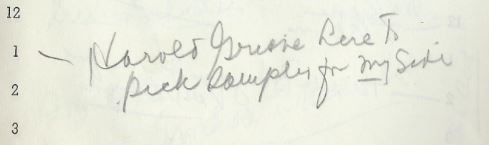 12
1 — Harold Greene here to
2 pick samples for My Side
3